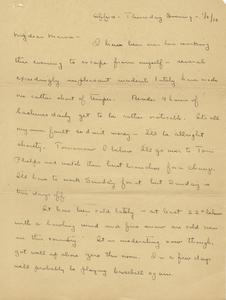 Thursday Evening -
My dear Mama -
I have been
this evening to escape from myself - several
exceedingly unpleasant incidents lately have made
me rather short of temper. Besides 4 hours of
daily get to be rather noticeable. It's all
my own fault so don't worry. I'll be allright
shortly. Tomorrow I believe I'll go over to Tom
Phelps and watch them bust branches for a change.
I'll have to work Sunday for it but Sunday is
this day off.
It has been cold lately - at least 22° below
with a howling wind and fine snow are cold even
in this country. It is moderating now though;
got well up above zero this noon. In a few days
we'll probably be playing baseball again.